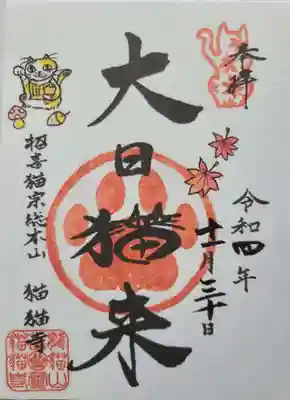 奉拝
令和四年
十一月三十日
大日猫来
招喜猫宗総本山 猫猫寺